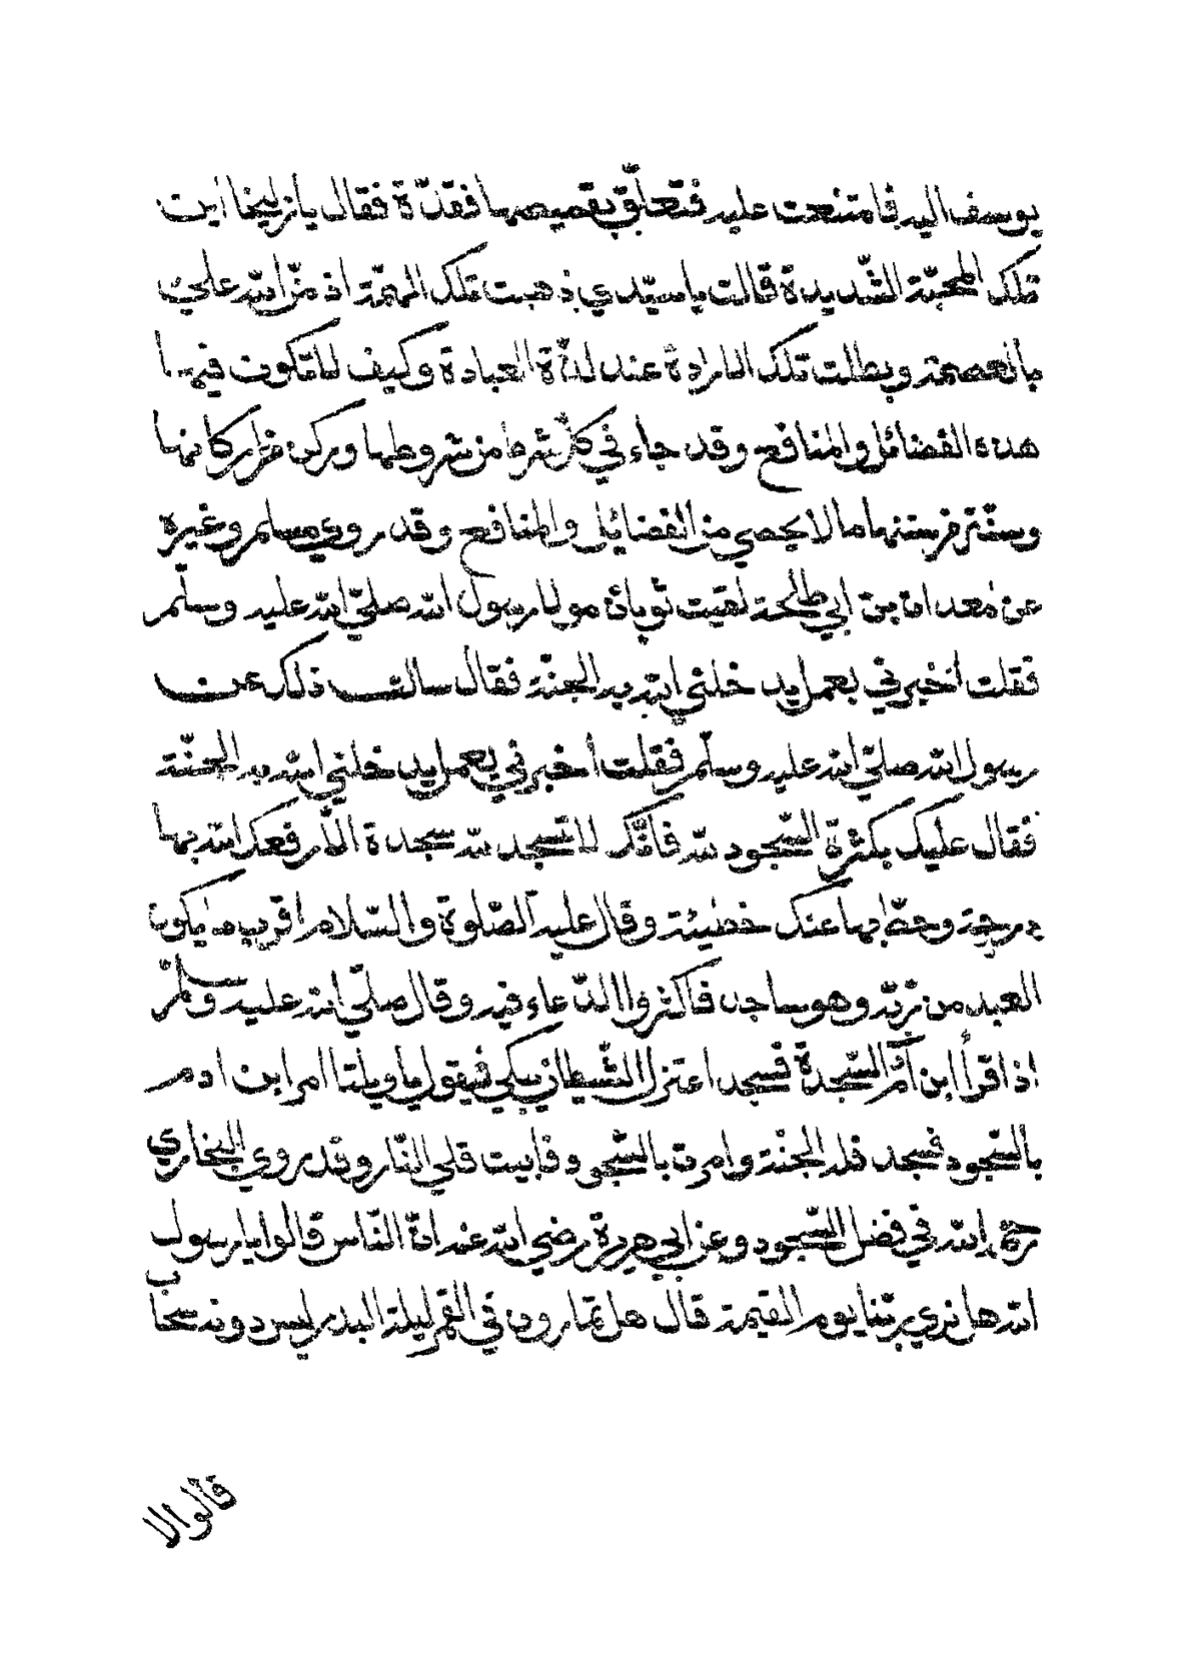 يوسف اليه فامتنعت عليه فتعلّق بقميصها فقدّه فقال يا زليخا اين
تلك المحبّة الشّديدة قالت يا سيّدي ذهبت تلك المحبّة اذ منّ الله عليّ
بالعصمة وبطلت تلك الارادة عند لذّة العبادة وكيف لا تكون فيها
هذه الفضائل والمنافع وقد جاء في كلّ شرط من شروطها وركن من اركانها
وسنّة من سننها ما لا يحصي من الفضائل والمنافع وقد روي مسلم وغيره
عن معدان بن ابي طلحة لقيت ثوبان مولا رسول الله صليّ الله عليه وسلّم
فقلت أخبرني بعمل يدخلني الله به الجنّة فقال سالت ذلك عن
رسول الله صليّ الله عليه وسلّم فقلت أخبرني بعمل يدخلني الله به الجنّة
فقال عليك بكثرة السّجود لله فانّك لا تسجد لله سجدة الاّ رفعك الله بها
درجة وحطّ بها عنك خطيئة وقال عليه الصّلوة والسّلام اقرب ما يكون
العبد من ربّه وهو ساجد فاكثروا الدّعاء فيه وقال صليّ الله عليه وسلّم
اذا قرأ ابن آدم السّجدة فسجد اعتزل الشّيطان يبكي فيقول يا ويلتا امر ابن ادم
بالسّجود فسجد فله الجنّة وامرت بالسّجود فابيت فلي النّار وقد روي البخاري
رحمه الله في فضل السّجود وعن ابي هريرة رضي الله عنه انّ النّاس قالوا يا رسول
الله هل نري ربّنا يوم القيمة قال هل تمارون في القمر ليلة البدر ليس دونه سحاب
قالوا لا